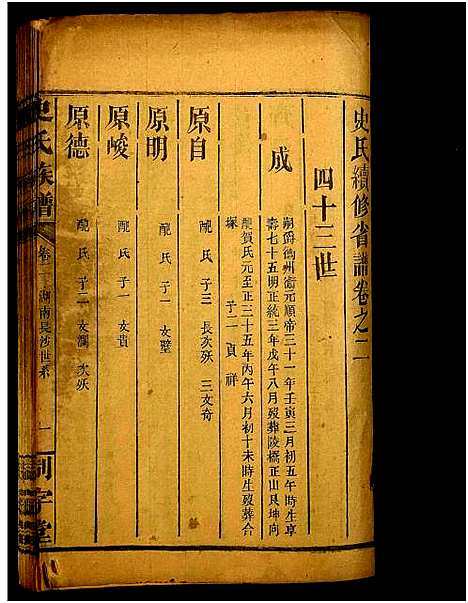 史氏續修省譜卷之二
四十三世
成
嗣爵衛州衛元順帝三十一年壬寅三月初五午時生享
壽七十五明正統三年戊午八月歿葬陵橋正山艮坤向
醜賀氏元至正三十五年丙午六月初十未時生歿葬合
塚 子二 貞 祥
原自
醜 氏 子三 長次歿 三文奇
原明
醜 氏 子一 文璧
原峻
醜 氏 子一 文貴
原德
醜 氏 子二 文瀾 次歿
史氏族譜
卷二 湖南長沙世系
一